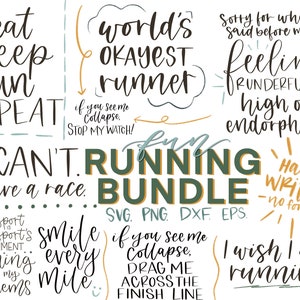 eat
sleep
run
REPEAT
world's
okayest
runner
if you see me
collapse,
STOP MY WATCH!
Sorry for wh
said before m
feelin
RUNDERFU
high o
endorph
I CAN'T.
have a race.
fun
RUNNING
BUNDLE
SVG. PNG. DXF EPS.
Ha
WRI
no fo
smile
every
mile
if you see me
collapse,
DRAG ME
ACROSS THE
FINISH LINE
I wish I
runnin